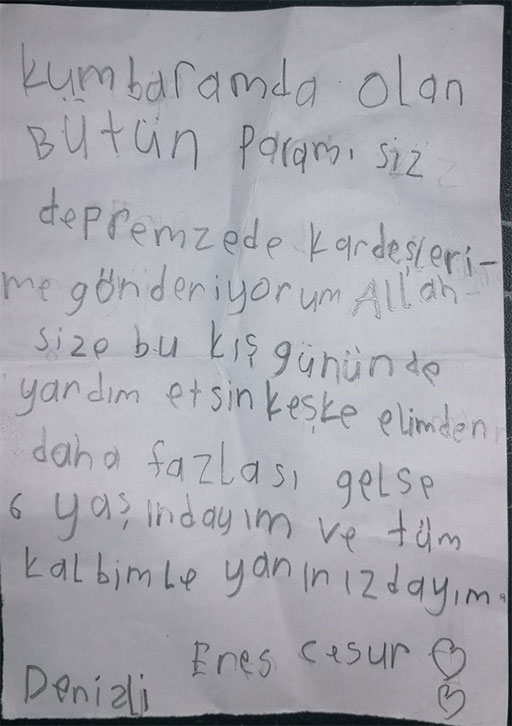 Kumbaramda olan
Bütün paramı siz
depremzede kardeşleri-
me gönderiyorum Allah
size bu kış gününde
yardım etsin keşke elimden
daha fazlası gelse
6 yaşındayım ve tüm
kalbimle yanınızdayım.
Enes Cesur
Denizli